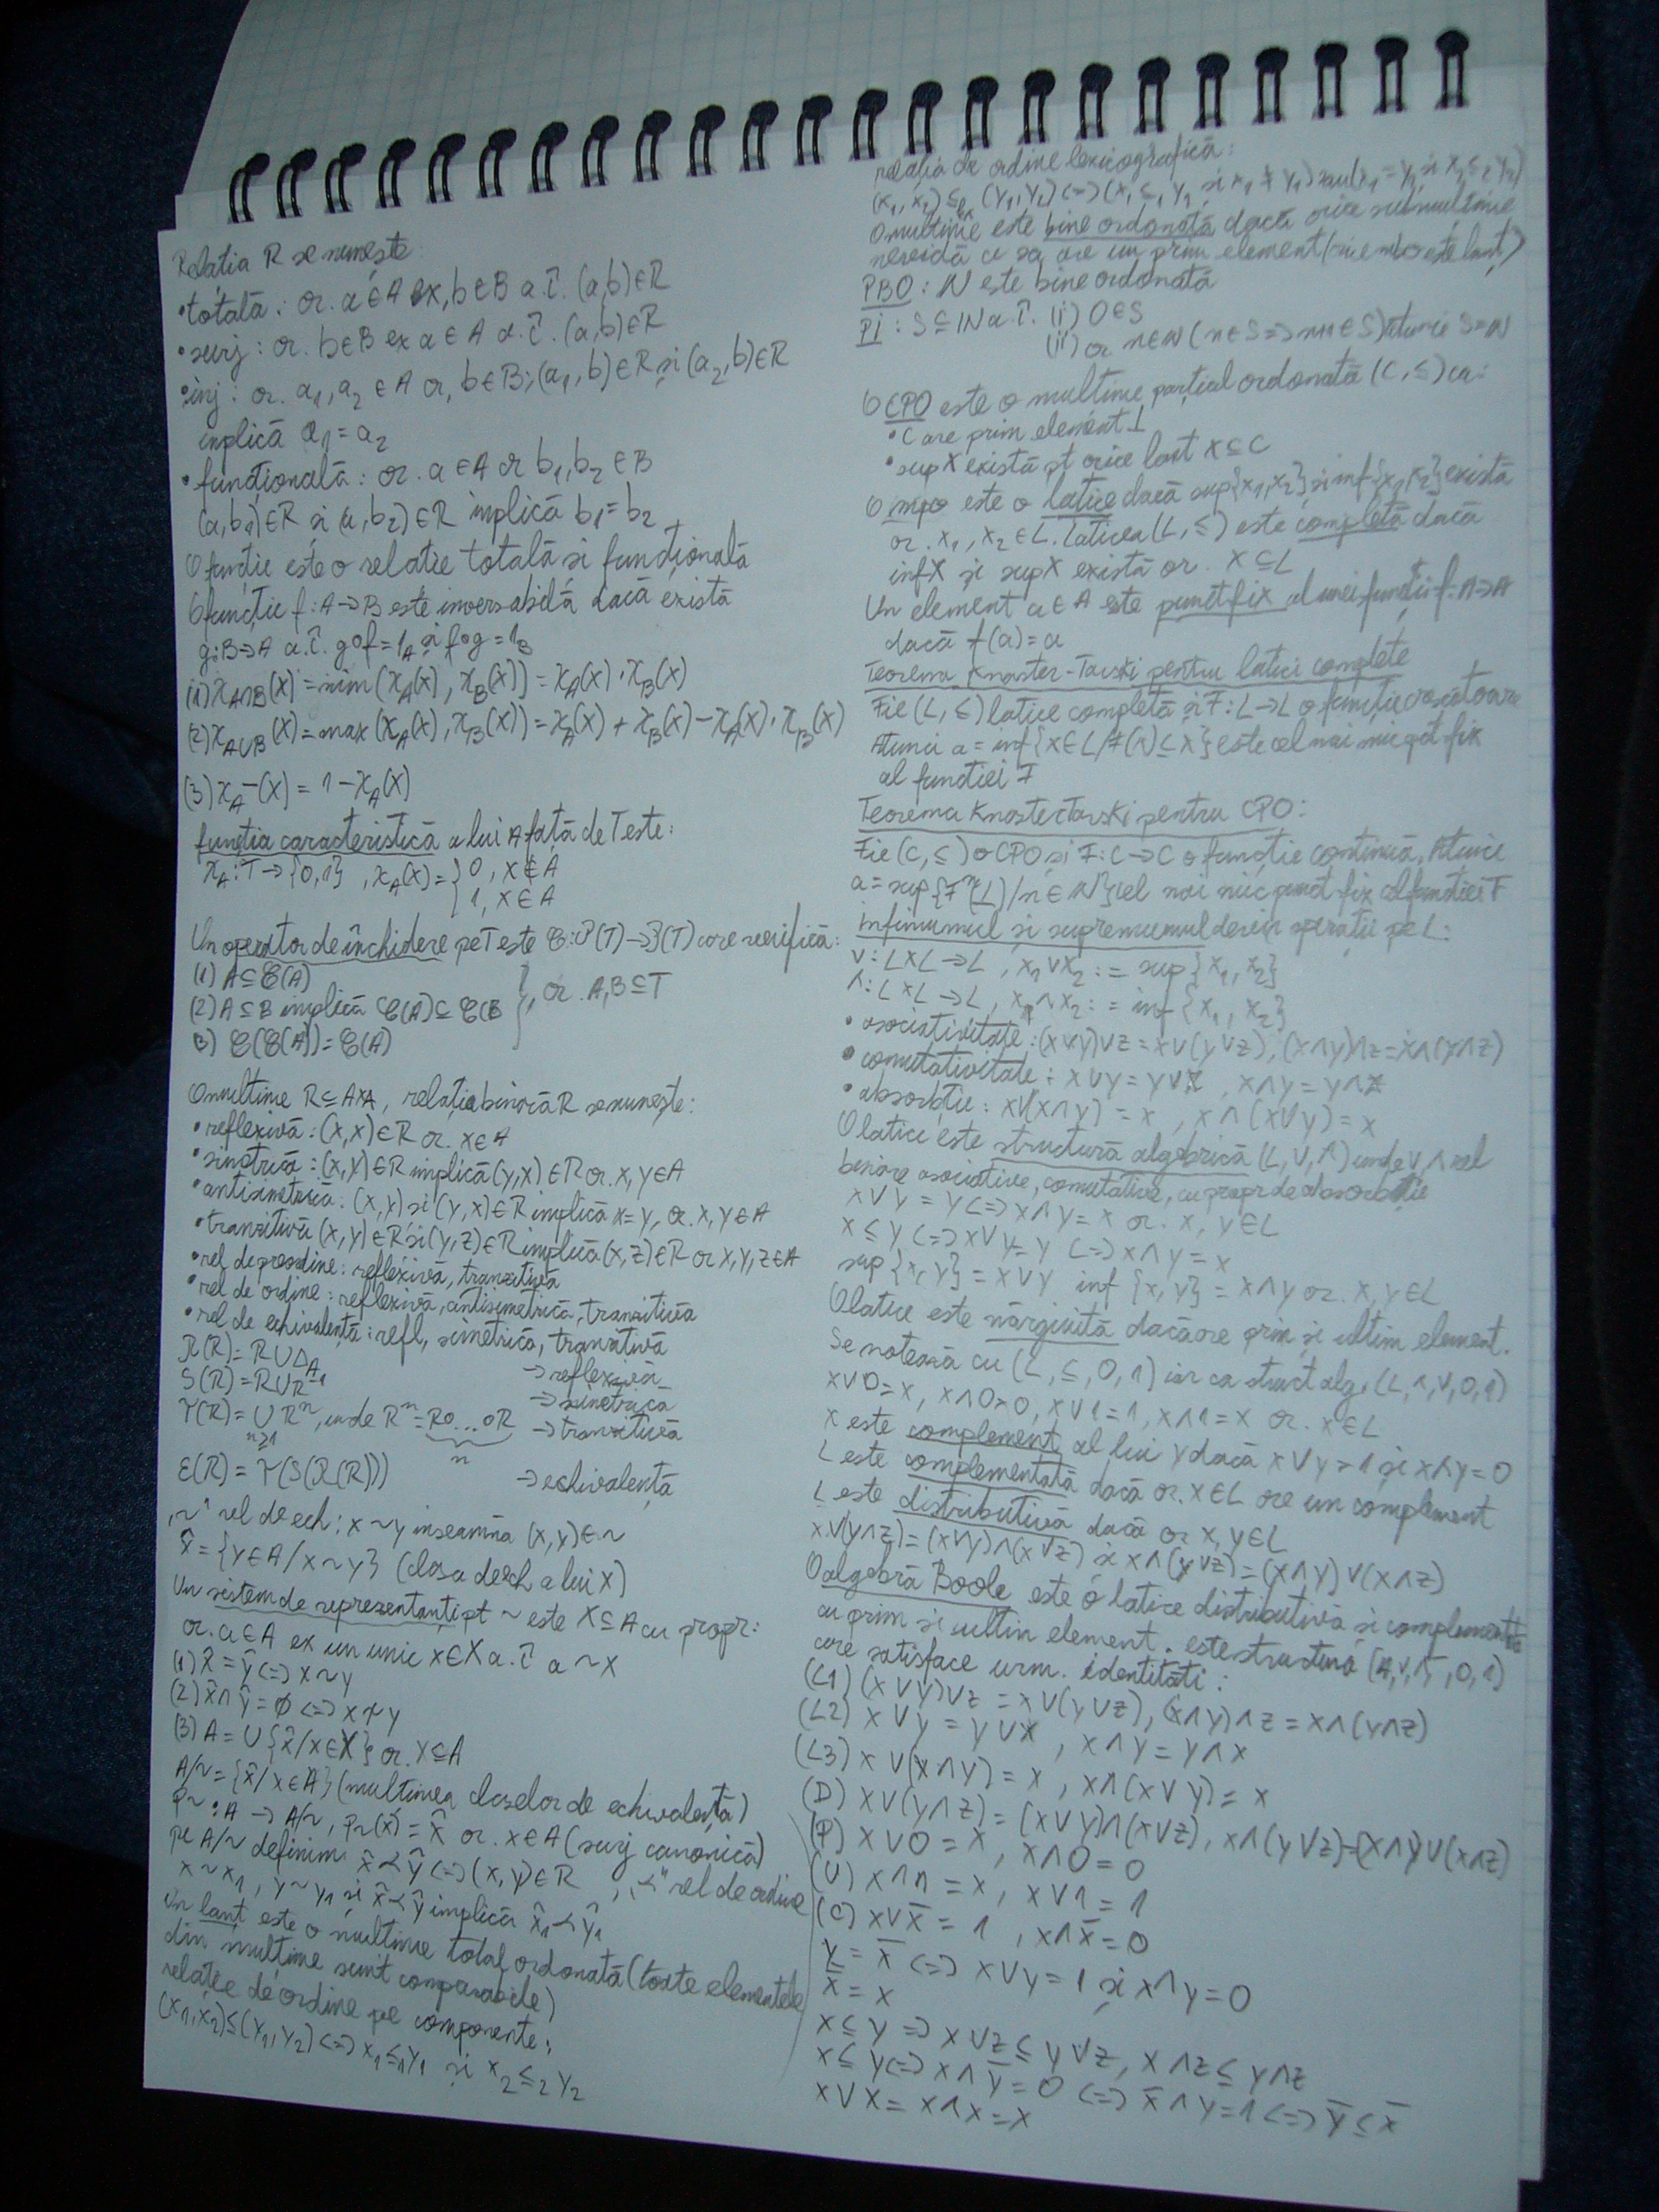 Relația R se numește:
• totală: or. a∈A ex, b∈B a.î. (a,b)∈R
• surj: or. b∈B ex a∈A a.î. (a,b)∈R
• inj: or. a₁, a₂ ∈ A or, b∈B; (a₁, b)∈R și (a₂, b)∈R
implică a₁ = a₂
• funcțională: or. a∈A or b₁, b₂ ∈ B
(a,b₁)∈R și (a, b₂)∈R implică b₁ = b₂
O funcție este o relație totală și funcțională
O funcție f: A→B este inversabilă dacă există
g: B→A a.î. g∘f = 1_A și f∘g = 1_B
(1) χ_A∩B(x) = min(χ_A(x), χ_B(x)) = χ_A(x)·χ_B(x)
(2) χ_A∪B(x) = max(χ_A(x), χ_B(x)) = χ_A(x) + χ_B(x) − χ_A(x)·χ_B(x)
(3) χ_A⁻(x) = 1 − χ_A(x)
funcția caracteristică a lui A față de T este:
χ_A: T→{0,1}, χ_A(x) = { 0, x∉A
1, x∈A
Un operator de închidere pe T este C: P(T)→P(T) care verifică:
(1) A⊆C(A)
(2) A⊆B implică C(A)⊆C(B }, or. A,B⊆T
(3) C(C(A)) = C(A)
O mulțime R⊆A×A, relația binară R se numește:
• reflexivă: (x,x)∈R or. x∈A
• simetrică: (x,y)∈R implică (y,x)∈R or. x, y∈A
• antisimetrică: (x,y) și (y,x)∈R implică x=y, or. x, y∈A
• tranzitivă (x,y)∈R și (y,z)∈R implică (x,z)∈R or x,y,z∈A
• rel de preordine: reflexivă, tranzitivă
• rel de ordine: reflexivă, antisimetrică, tranzitivă
• rel de echivalență: refl, simetrică, tranzitivă
R(R) = R∪Δ_A → reflexivă
S(R) = R∪R⁻¹ → simetrică
T(R) = ∪ Rⁿ, unde Rⁿ = R∘...∘R → tranzitivă
n≥1 n
E(R) = T(S(R(R))) → echivalență
„~" rel de ech; x~y inseamna (x,y)∈~
x̂ = {y∈A / x~y} (clasa de ech a lui x)
Un sistem de reprezentanți pt ~ este X⊆A cu propr:
or. a∈A ex un unic x∈X a.î a~x
(1) x̂ = ŷ <=> x~y
(2) x̂∩ŷ = ∅ <=> x≁y
(3) A = ∪{x̂/x∈X} or. X⊆A
A/~ = {x̂/x∈A} (mulțimea claselor de echivalență)
P~: A→A/~, p~(x) = x̂ or. x∈A (surj canonică)
pe A/~ definim x̂≺ŷ <=> (x,y)∈R, „≺" rel de ordine
x~x₁, y~y₁ și x̂≺ŷ implică x̂₁≺ŷ₁
Un lanț este o mulțime total ordonată (toate elementele
din mulțime sunt comparabile)
relație de ordine pe componente:
(x₁,x₂)≤(y₁,y₂) <=> x₁≤₁y₁ și x₂≤₂y₂
relația de ordine lexicografică:
(x₁, x₂) ≤ₗ (y₁,y₂) <=> (x₁ ≤₁ y₁ și x₁ ≠ y₁) sau (x₁ = y₁ și x₂ ≤₂ y₂)
O mulțime este bine ordonată dacă orice submulțime
nevidă a sa are un prim element (orice mbo este lanț)
PBO: N este bine ordonată
PI: S⊆N a.î. (i) 0∈S
(ii) or n∈N (n∈S => n+1∈S) atunci S=N
O CPO este o mulțime parțial ordonată (C,≤) ca:
• C are prim element ⊥
• sup X există pt orice lanț X⊆C
O mpo este o latice dacă sup{x₁,x₂} și inf{x₁,x₂} există
or. x₁, x₂∈L. Laticea (L,≤) este completă dacă
inf X și sup X există or. X⊆L
Un element a∈A este punct fix al unei funcții f: A→A
dacă f(a) = a
Teorema Knaster-Tarski pentru latici complete
Fie (L,≤) latice completă și F: L→L o funcție crescătoare
Atunci a = inf{x∈L/F(x)≤x} este cel mai mic pct fix
al funcției F
Teorema Knaster Tarski pentru CPO:
Fie (C,≤) o CPO și F: C→C o funcție continuă. Atunci
a = sup{Fⁿ(⊥)/n∈N} cel mai mic punct fix al funcției F
infimumul și supremumul devin operații pe L:
∨: L×L→L, x₁∨x₂ := sup{x₁, x₂}
∧: L×L→L, x₁∧x₂ := inf{x₁, x₂}
• asociativitate: (x∨y)∨z = x∨(y∨z), (x∧y)∧z = x∧(y∧z)
• comutativitate: x∨y = y∨x, x∧y = y∧x
• absorbție: x∨(x∧y) = x, x∧(x∨y) = x
O latice este structură algebrică (L,∨,∧) unde ∨,∧ rel
binare asociative, comutative, cu propr de absorbție
x∨y = y <=> x∧y = x or. x, y∈L
x≤y <=> x∨y=y <=> x∧y = x
sup{x,y} = x∨y inf{x,y} = x∧y or. x,y∈L
O latice este mărginită dacă are prim și ultim element.
Se notează cu (L,≤,0,1) iar ca struct alg. (L,∧,∨,0,1)
x∨0=x, x∧0=0, x∨1=1, x∧1=x or. x∈L
x este complement al lui y dacă x∨y=1 și x∧y=0
L este complementată dacă or. x∈L are un complement
L este distributivă dacă or x, y∈L
x∨(y∧z)=(x∨y)∧(x∨z) și x∧(y∨z)=(x∧y)∨(x∧z)
O algebră Boole este o latice distributivă și complementată
cu prim și ultim element. este structura (A,∨,∧,⁻,0,1)
care satisface urm. identități:
(L1) (x∨y)∨z = x∨(y∨z), (x∧y)∧z = x∧(y∧z)
(L2) x∨y = y∨x, x∧y = y∧x
(L3) x∨(x∧y) = x, x∧(x∨y) = x
(D) x∨(y∧z) = (x∨y)∧(x∨z), x∧(y∨z)=(x∧y)∨(x∧z)
(P) x∨0 = x, x∧0 = 0
(U) x∧1 = x, x∨1 = 1
(C) x∨x̄ = 1, x∧x̄ = 0
y = x̄ <=> x∨y = 1 și x∧y = 0
x̿ = x
x≤y => x∨z ≤ y∨z, x∧z ≤ y∧z
x≤y <=> x∧ȳ = 0 <=> x̄∧y=1 <=> ȳ≤x̄
x∨x = x∧x = x